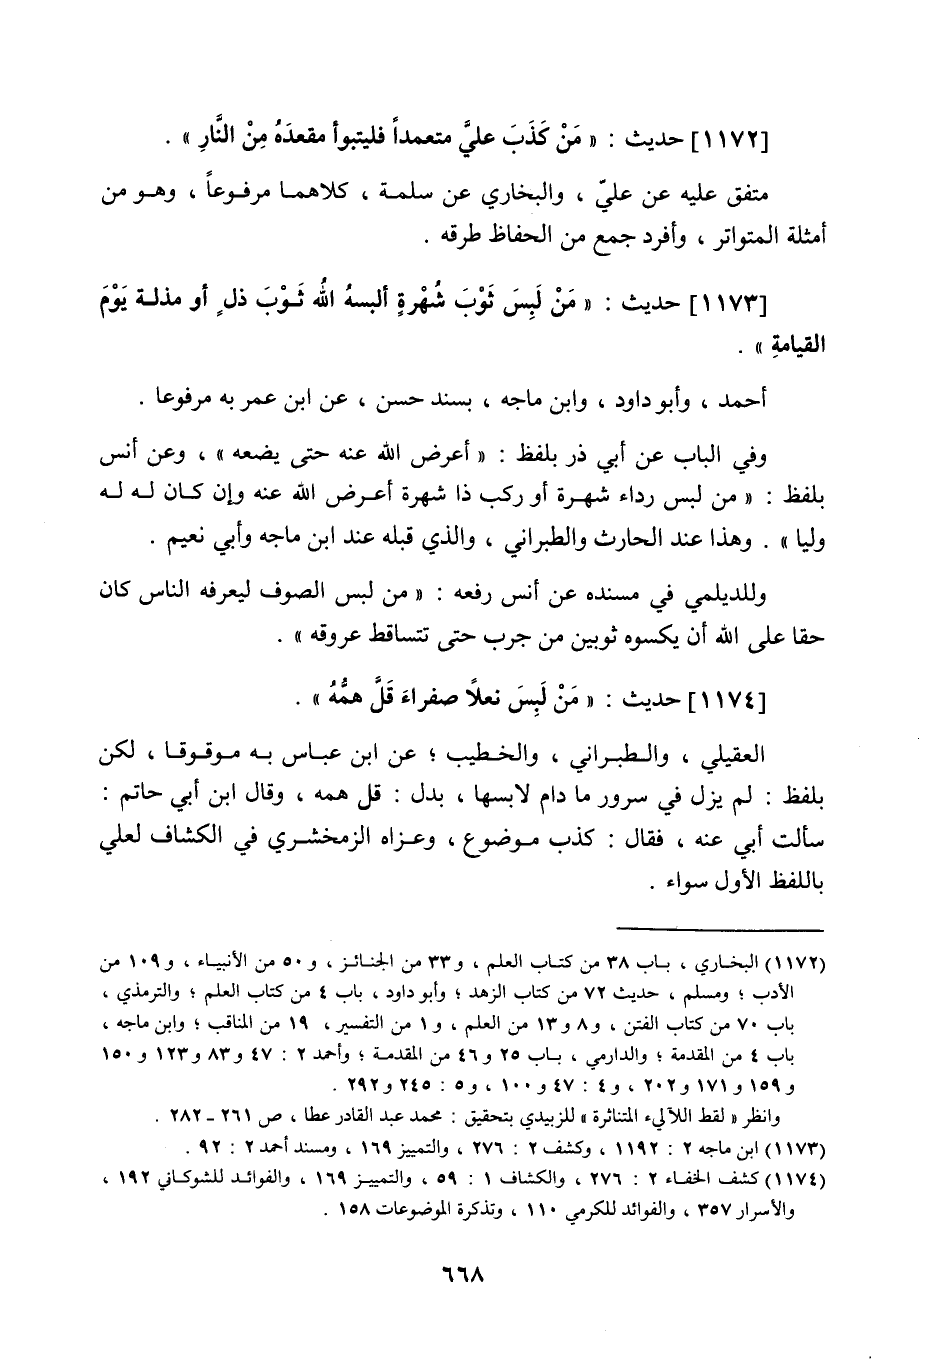 [١١٧٢] حديث : « مَنْ كَذَبَ عليَّ متعمداً فليتبوأ مقعدَهُ مِنْ النَّارِ » .
متفق عليه عن عليّ ، والبخاري عن سلمة ، كلاهما مرفوعاً ، وهو من
أمثلة المتواتر ، وأفرد جمع من الحفاظ طرقه .
[١١٧٣] حديث : « مَنْ لَبِسَ ثَوْبَ شُهْرةٍ ألبسهُ اللهُ ثَوْبَ ذلٍ أو مذلة يَوْمَ
القيامةِ » .
أحمد ، وأبو داود ، وابن ماجه ، بسند حسن ، عن ابن عمر به مرفوعا .
وفي الباب عن أبي ذر بلفظ : « أعرض الله عنه حتى يضعه » ، وعن أنس
بلفظ : « من لبس رداء شهرة أو ركب ذا شهرة أعرض الله عنه وإن كان له له
وليا » . وهذا عند الحارث والطبراني ، والذي قبله عند ابن ماجه وأبي نعيم .
وللديلمي في مسنده عن أنس رفعه : « من لبس الصوف ليعرفه الناس كان
حقا على الله أن يكسوه ثوبين من جرب حتى تتساقط عروقه » .
[١١٧٤] حديث : « مَنْ لَبِسَ نعلًا صفراءَ قَلَّ همُّهُ » .
العقيلي ، والطبراني ، والخطيب ؛ عن ابن عباس به موقوفا ، لكن
بلفظ : لم يزل في سرور ما دام لابسها ، بدل : قل همه ، وقال ابن أبي حاتم :
سألت أبي عنه ، فقال : كذب موضوع ، وعزاه الزمخشري في الكشاف لعلي
باللفظ الأول سواء .
(١١٧٢) البخاري ، باب ٣٨ من كتاب العلم ، و٣٣ من الجنائز ، و٥٠ من الأنبياء ، و١٠٩ من
الأدب ؛ ومسلم ، حديث ٧٢ من كتاب الزهد ؛ وأبو داود ، باب ٤ من كتاب العلم ؛ والترمذي ،
باب ٧٠ من كتاب الفتن ، و٨ و١٣ من العلم ، و١ من التفسير ، ١٩ من المناقب ؛ وابن ماجه ،
باب ٤ من المقدمة ؛ والدارمي ، باب ٢٥ و٤٦ من المقدمة ؛ وأحمد ٢ : ٤٧ و٨٣ و١٢٣ و١٥٠
و١٥٩ و١٧١ و٢٠٢ ، و٤ : ٤٧ و١٠٠ ، و٥ : ٢٤٥ و٢٩٢ .
وانظر « لقط اللآليء المتناثرة » للزبيدي بتحقيق : محمد عبد القادر عطا ، ص ٢٦١ ـ ٢٨٢ .
(١١٧٣) ابن ماجه ٢ : ١١٩٢ ، وكشف ٢ : ٢٧٦ ، والتمييز ١٦٩ ، ومسند أحمد ٢ : ٩٢ .
(١١٧٤) كشف الخفاء ٢ : ٢٧٦ ، والكشاف ١ : ٥٩ ، والتمييز ١٦٩ ، والفوائد للشوكاني ١٩٢ ،
والأسرار ٣٥٧ ، والفوائد للكرمي ١١٠ ، وتذكرة الموضوعات ١٥٨ .
٦٦٨